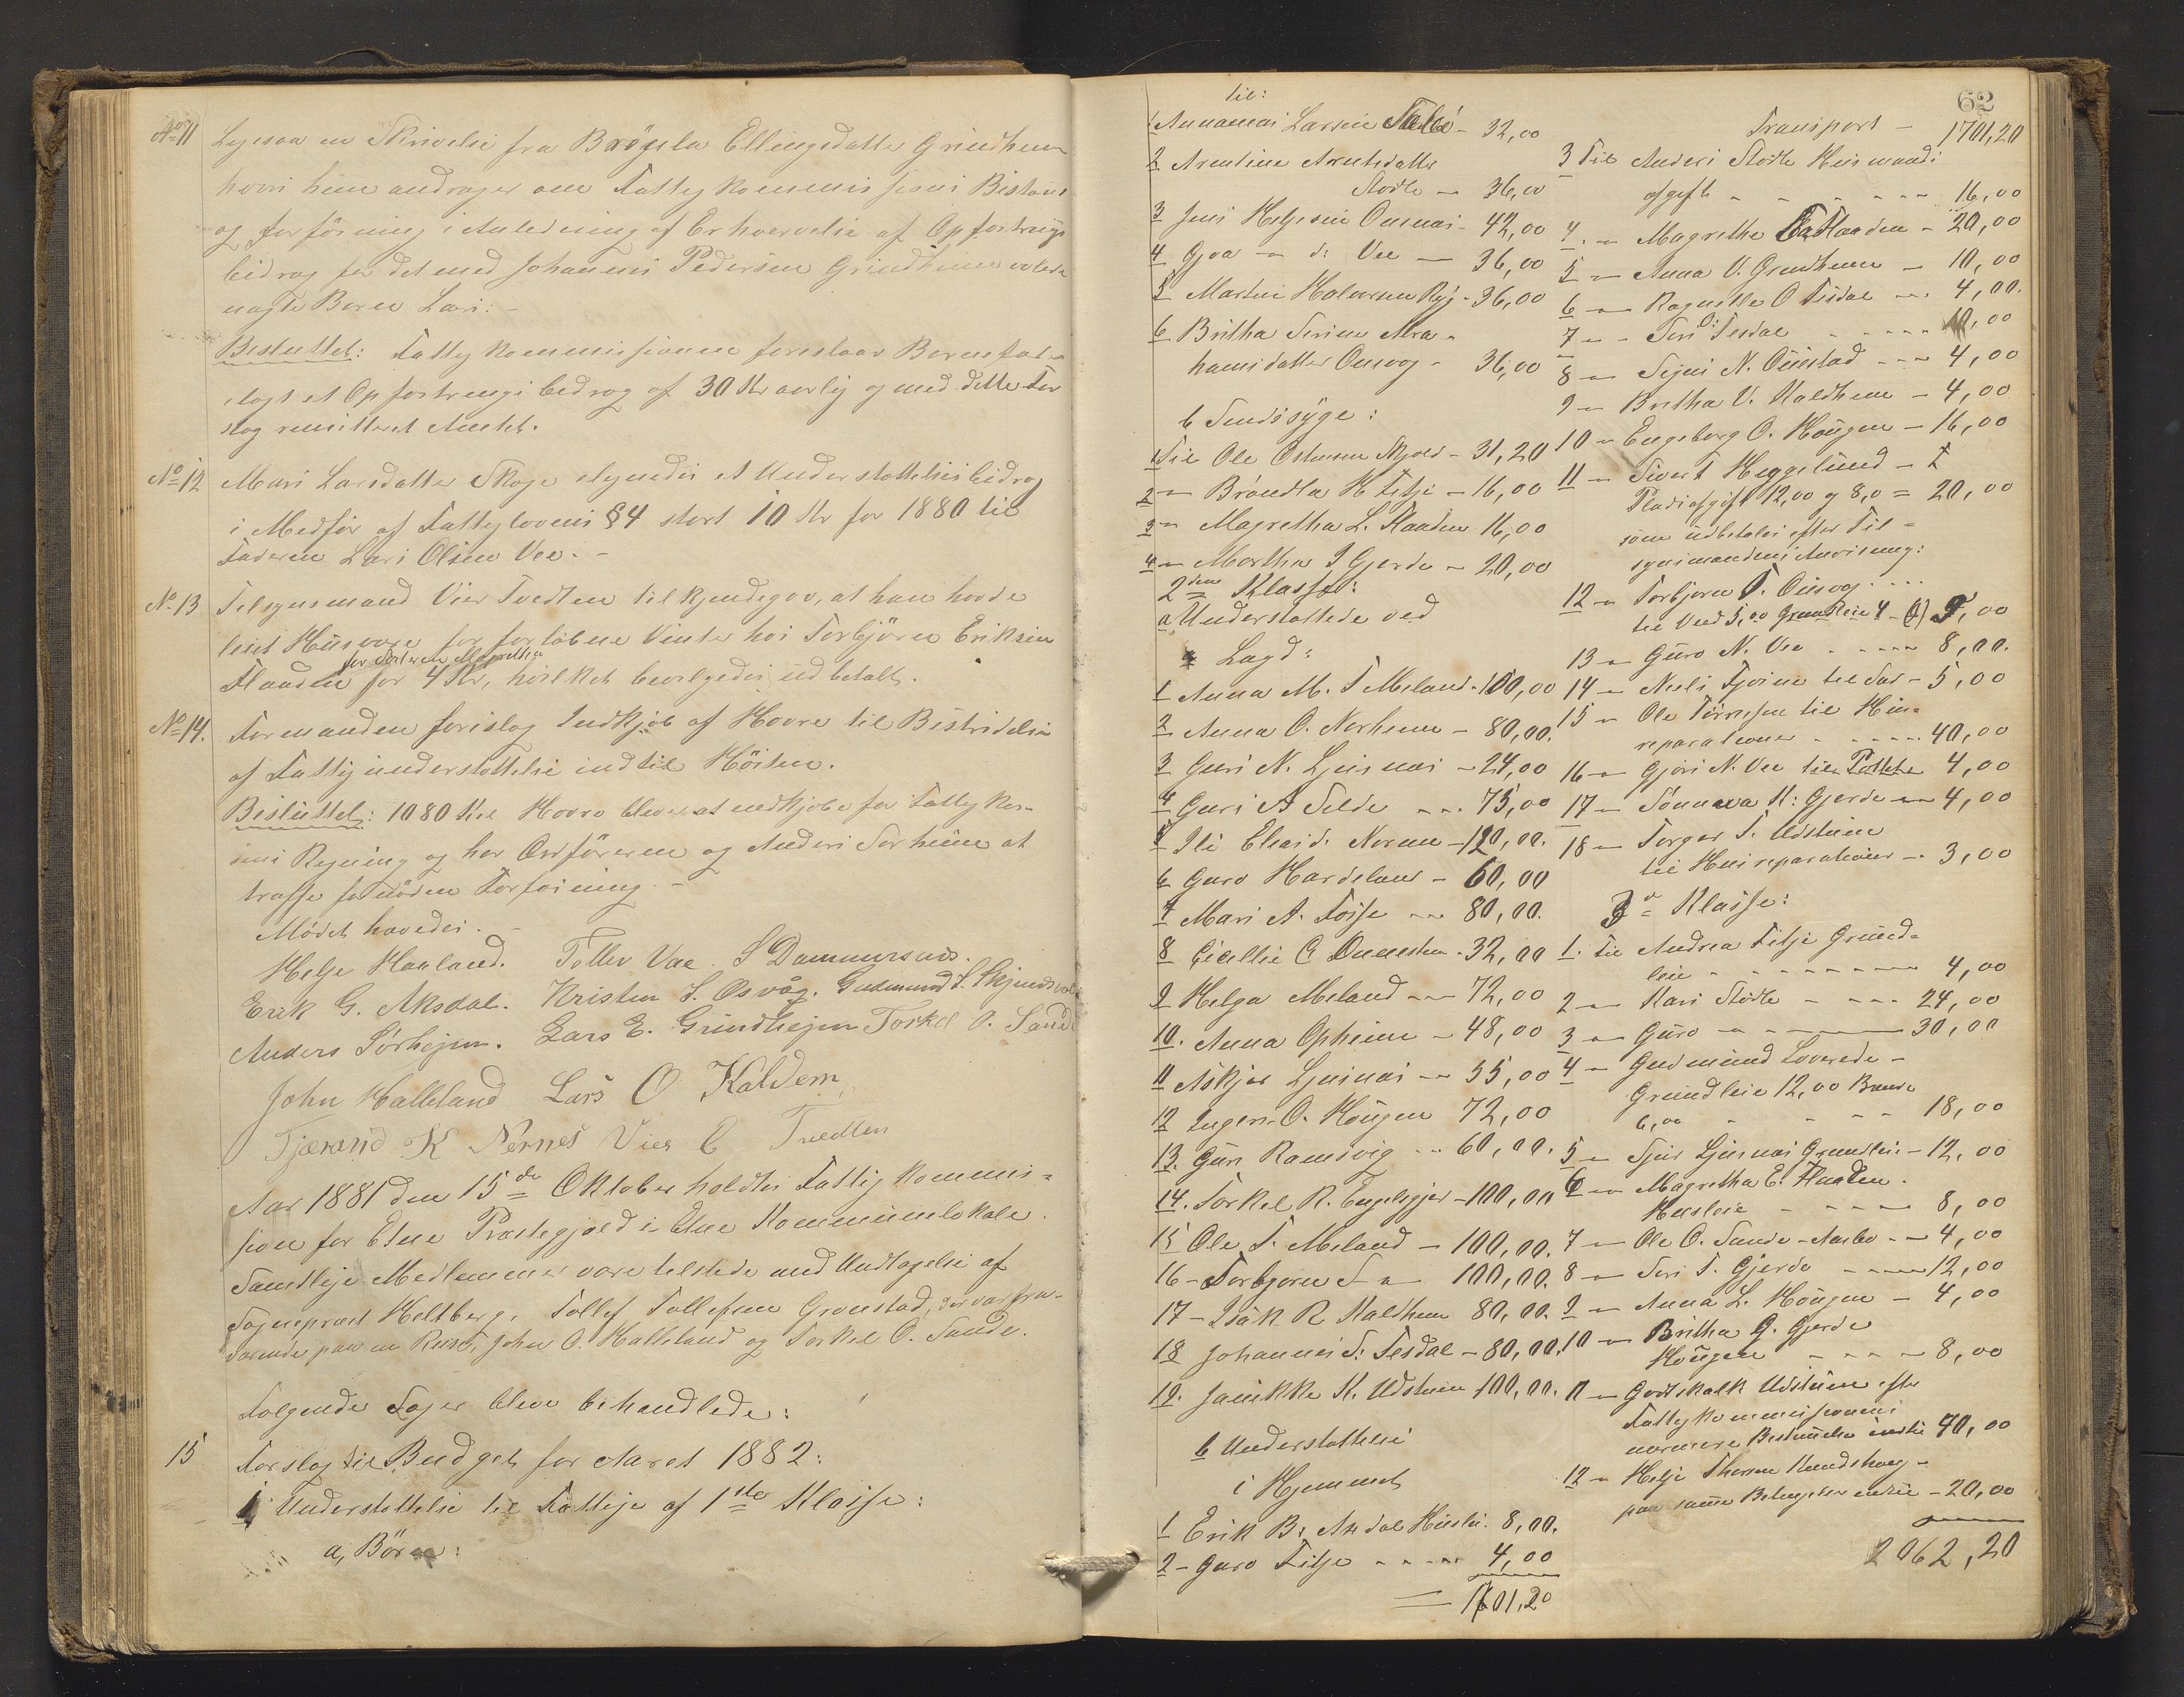 No 11 Lignaa en Skrivelse fra Brögela Ellingsdatter Grindhem
hvori hun andrager om Fattigkommissions Bistand
og forföining i Anledning af Erhvervelse af Opfostrings
bidrag for det med Johannes Pedersen Grindheim
Barn Lars:-
Besluttet: Fattigkommissionen foreslaar Barnefad-
et Opfostringsbidrag af 30 Kr aarlig og med dette For
slag remitteret Amtet.
No 12 Mari Larsdatter Skoge et Understøttelsesbidrag
i Medför af Fattiglovens § 4 stort 10 Kr for 1880 til
Faderen Lars Olsen Vee.-
No 13 Tilsynsmand Vier Tvedten tilkjendegav, at han havde
leiet Huusvære for forløbne Vinter hos Torbjören Eriksen
for Søsteren Magrethe
Flaaden for 4 Kr, hvilket bevilgedes udbetalt.
No 14. Formanden foreslog Indkjöb af Havre til Bestridelse
af Fattigunderstøttelse indtil Hösten.
Besluttet: 1080 Kil Havre bliver at indkjøbe for Fattigkas-
sens Regning og har Ordföreren og Anders Sørheim at
træffe fornöden Forföining.-
Mödet hævedes.-
Helge Haaland. Tollev Vae. S Dommersnes.
Erik G. Aksdal. Kristen S. Osvåg. Gudmund S. Skjensvold
Anders Sörhejm. Lars E. Grindhejm Torkel O. Sande
John Halleland Lars O Kaldem
Tjerand K Nernes Vier E Tvedten
Aar 1881 den 15de Oktober holdtes Fattigkommis=
sion for Etne Præstegjeld i Etne Kommunelokale.
Samtlige Medlemmer vare tilstede med Undtagelse af
Sognepræst Heltberg, Tollef Tollefsen Grønstad, der var fra-
værende paa en Reise, John O. Halleland og Torkel O. Sande.
Følgende Sager bleve behandlede:
15 Forslag til Budget for Aaret 1882:
1 Understøttelse til Fattige af 1ste Klasse:
a, Börn:
62
til:
1 Annanias Larsen - 32,00
2 Arentine Arentsdatter
Stødle - 36,00
3 Jens Helgesen - 42,00
4 Gjoa - d: Vee - 36,00
5 Martin Halvorsen - 36,00
6 Britha Serine Abra-
hamsdatter Osvog - 36,00
b Sindssyge:
1 Til Ole Østensen Skjold - 31,20
2 - Bröndla H Fitje - 16,00
3 - Magretha L. Flaaden 16,00
4 - Martha I Gjerde - 20,00
2den Klasse:
a Understøttede ved
Lægd:
1 Anna M. T Meland - 100,00
2 Anna O. Norheim - 80,00.
3 Guri N. Ljusnæs - 24,00
4 Guri A Silde - 75,00
5 Ili Elias d. - 120,00.
6 Guro Hardeland - 60,00
7 Mari A. - 80,00.
8 Cicillie C - 32,00
9 Helga Meland - 72,00
10. Anna Opheim - 48,00
11 Askjer Ljusnæs - 55,00
12 Ingeri O. Hougen 72,00
13. Guri Ramsvig - 60,00.
14. Torkel R. - 100,00
15 Ole T. Meland - 100,00.
16 - Torbjörn T - 100,00.
17 - Isäk R Kaldhem 80,00.
18 Johannes S: Tesdal - 80,00.
19. Jannikke K. Udstuen 100,00.
b Understøttelse
i Hjemmet
1 Erik B: Axdal Husleie. 8,00.
2 - Guro Fitje - 4,00
= 1701,20
Transport - 1701,20
3 Til Anders Stödle Husmands
afgift - 16,00
4. - Magrethe E. Flaaden - 20,00
5 - Anna V. Grindhem - 10,00
6 - Ragnilde O Tesdal - 4,00.
7 - Siri O: Tesdal - 10,00
8 - N. Ousstad - 4,00
9 - Britha V. Kaldhem - 4,00
10 - Engeborg O. Hougen - 16,00
11 - Sivert Heggelund -
Pladsafgift 12,00 og 8,0 = 20,00
som udbetales efter Til=
synsmandens Anvisning:
12 - Torbjørn T. Osvog
til Ved 5,00 Grundleie 4 - 9,00
13 - Guro N. Vee - 8,00.
14 - Neels til - 5,00
15 - Ole til Hus-
reparationer - 40,00
16 - Gjöri N. Vee til 4,00
17 - Sönneva K: Gjerde - 4,00
18 - Torger T. Udstuen
til Husreparationer - 3,00
3de Klasse:
1. Til Andrea Fitje Grund=
leie - 4,00
2 - Kari Stödle - 24,00
3 - Guro - 30,00
4 - Gudmund
Grundleie 12,00 Brænde
6,00 - 18,00
5 - Ljusnæs Grundleie - 12,00
6 - Magretha E. Flaaden.
Husleie - 8,00
7 - Ole O. Sande - 4,00
8 - Siri T. Gjerde - 12,00
9 - Anna L. Hougen - 4,00
10 - Britha G. Gjerde
Hougen - 8,00
11 - Godtskalk Udstuen efter
Fattigkommissionens
nærmere Bestemmelse indtil 40,00
12 - Helge
paa samme Betingelser indtil - 20,00
2062,20